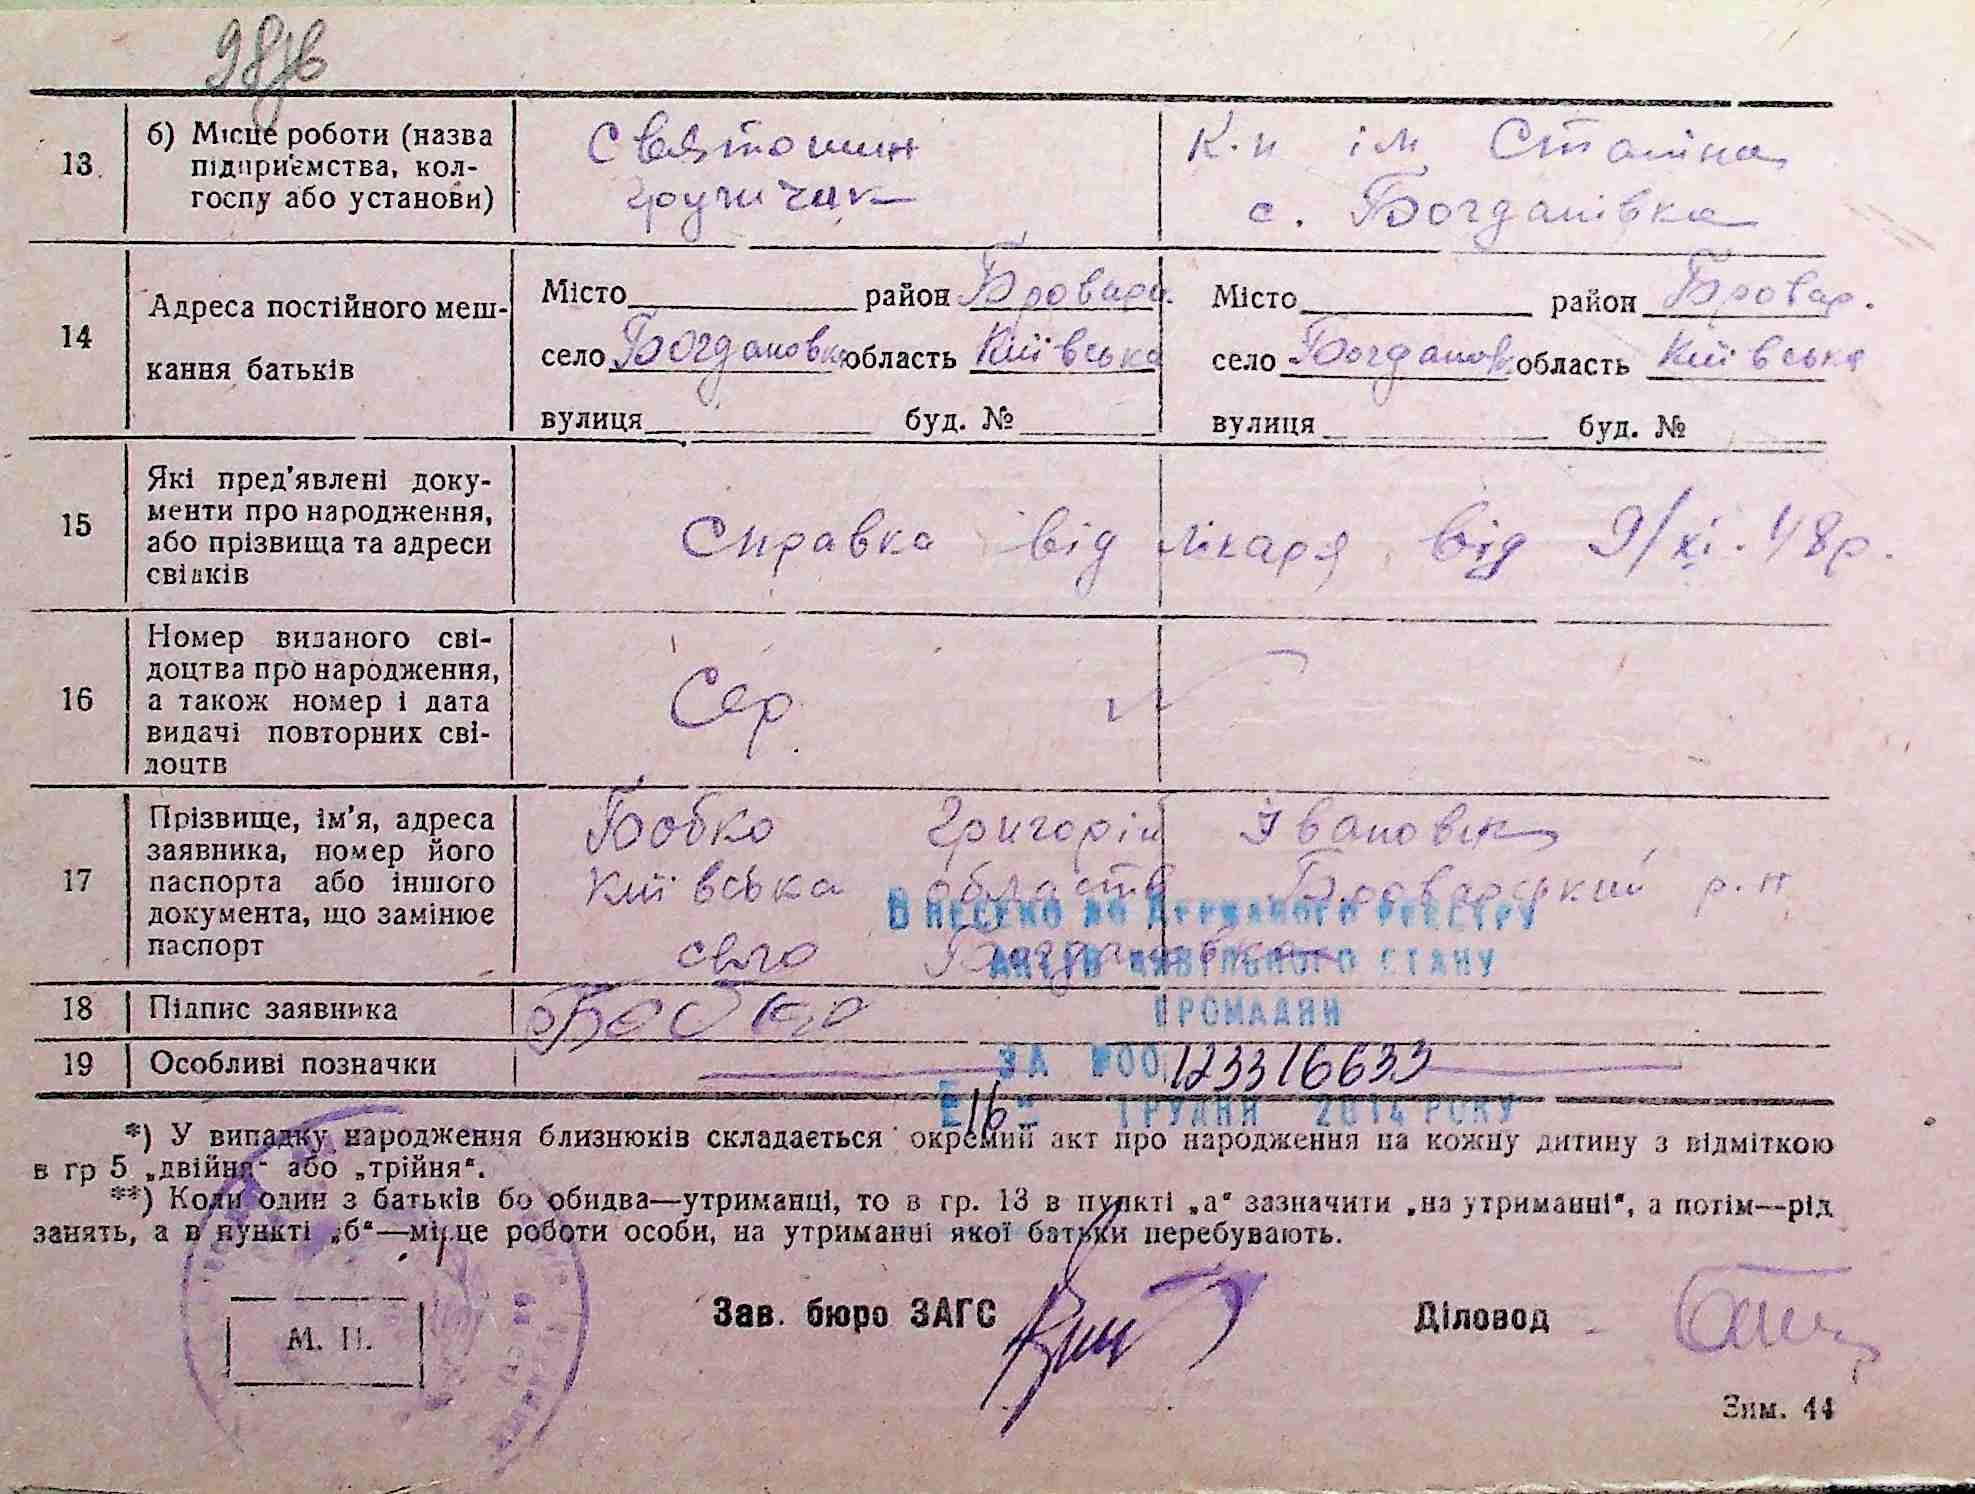 98зв
13. б) Місце роботи (назва підприємства, колгоспу або установи) Святошин К.п ім Сталіна
грузчик с. Богданівка
14 Адреса постійного мешкання батьків
Місто район Бровар. Місто район Бровар.
село Богдановка область Київська село Богданов область Київська
вулиця буд. № вулиця буд. №
15 Які пред'явлені документи про народження, або прізвища та адреси свідків
Справка від лікаря від 9/XI.48р.
16 Номер виданого свідоцтва про народження, а також номер і дата видачі повторних свідоцтв
Сер. №
17 Прізвище, ім'я, адреса заявника, номер його паспорта або іншого документа, що замінює паспорт
Бобко Григорій Іванович
Київська область Броварський р.н
село Богданівка
18 Підпис заявника Бобко
19 Особливі позначки
Внесено до Державного реєстру
актів цивільного стану
громадян
за №00123316633
16 грудня 2014 року
*) У випадку народження близнюків складається окремий акт про народження на кожну дитину з відміткою
в гр 5 „двійня" або „трійня".
**) Коли один з батьків бо обидва—утриманці, то в гр. 13 в пункті „а" зазначити „на утриманні", а потім—рід
занять, а в пункті „б"—місце роботи особи, на утриманні якої батьки перебувають.
М. П.
Зав. бюро ЗАГС Діловод
Зим. 44